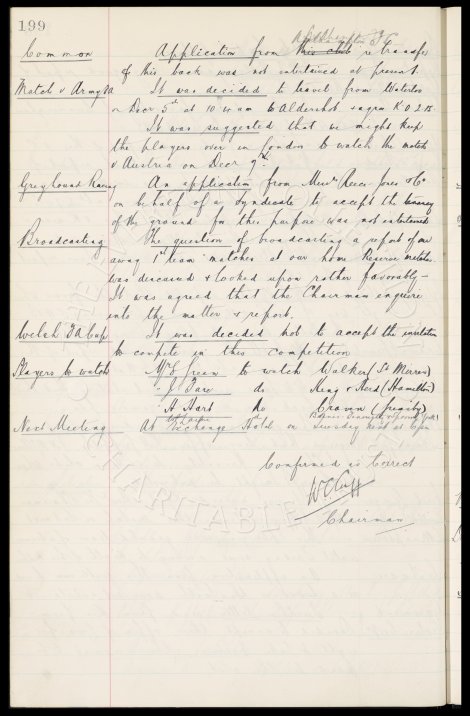 199
Southampton F C
Common Application from this club re transfer
of this back was not entertained at present.
Match v Army &c It was decided to travel from Waterloo
on Decr 5th at 10 am to Aldershot & agree K O 2.15.
It was suggested that we might keep
the players over in London to watch the match
v Austria on Decr 7th.
Greyhound Racing An application from Messrs Jones & Co
on behalf of a syndicate to accept the tenancy
of the ground for this purpose was not entertained
Broadcasting The question of broadcasting a report of our
away 1st team matches at our home Reserve matches
was discussed & looked upon rather favorably –
It was agreed that the Chairman enquire
into the matter & report.
Welsh FA Cup It was decided not to accept the invitation
to compete in this competition
Players to watch Mr Green to watch Walker (St Mirren)
Fare do King & Herd (Hamilton)
H Hart do Craven (Grimsby)
do
Next Meeting At Exchange Hotel on Tuesday next at 6pm
Confirmed as Correct
W C Cuff
Chairman
CHARITABLE